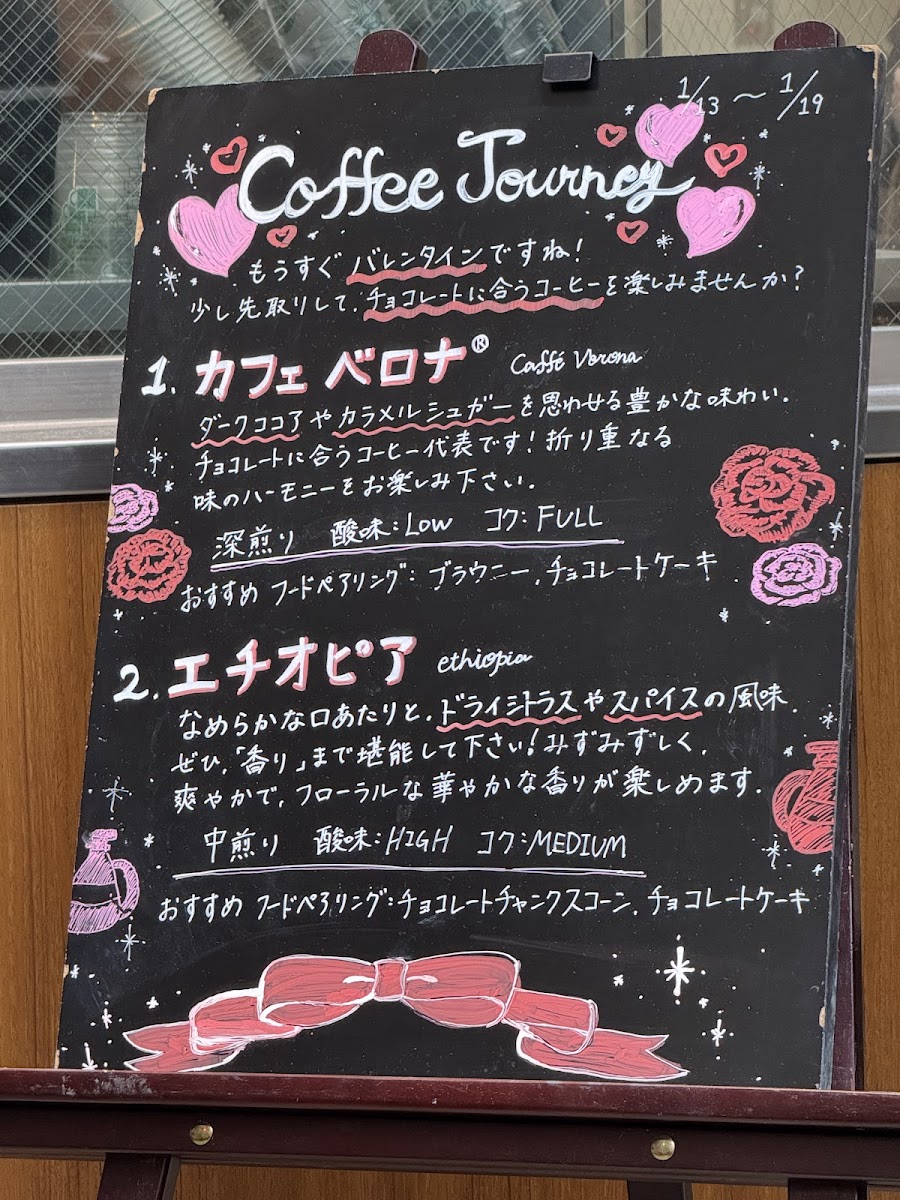 1/13 ～ 1/19
Coffee Journey
もうすぐバレンタインですね!
少し先取りして、チョコレートに合うコーヒーを楽しみませんか?
1. カフェ ベロナ® Caffé Verona
ダークココアやカラメルシュガーを思わせる豊かな味わい。
チョコレートに合うコーヒー代表です!折り重なる
味のハーモニーをお楽しみ下さい。
深煎り 酸味:Low コク:FULL
おすすめ フードペアリング: ブラウニー、チョコレートケーキ
2. エチオピア ethiopia
なめらかな口あたりと、ドライシトラスやスパイスの風味。
ぜひ、「香り」まで堪能して下さい!みずみずしく、
爽やかで、フローラルな華やかな香りが楽しめます。
中煎り 酸味:HIGH コク:MEDIUM
おすすめ フードペアリング:チョコレートチャンクスコーン、チョコレートケーキ